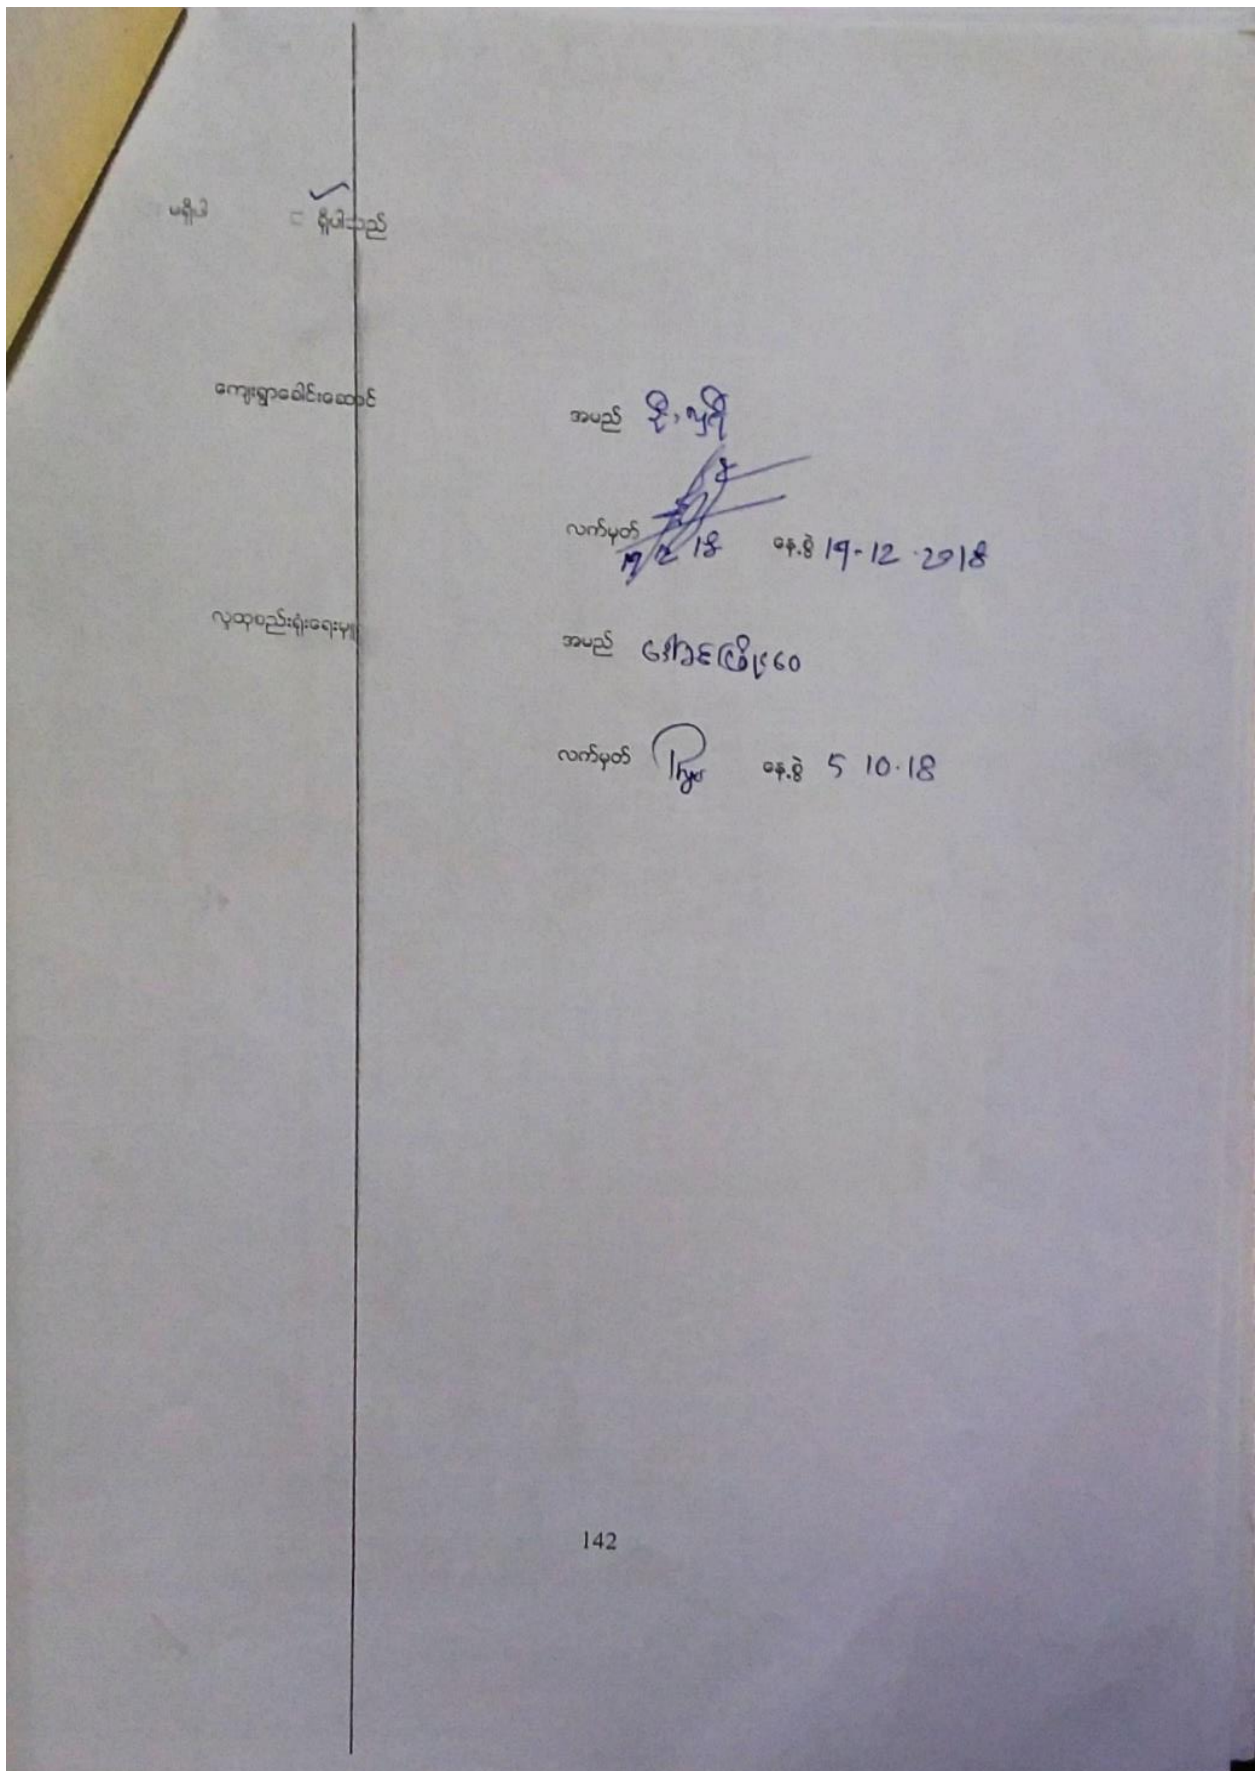 မရှိပါ ရှိပါသည်
ကျေးရွာခေါင်းဆောင်
အမည် ဦး
လက်မှတ် 19/12/18 နေ့စွဲ 19-12-2018
လူထုစည်းရုံးရေးမှူး
အမည် ဒေါ်ခင်ဖြိုးဝေ
လက်မှတ် Phyo နေ့စွဲ 5 10.18
142